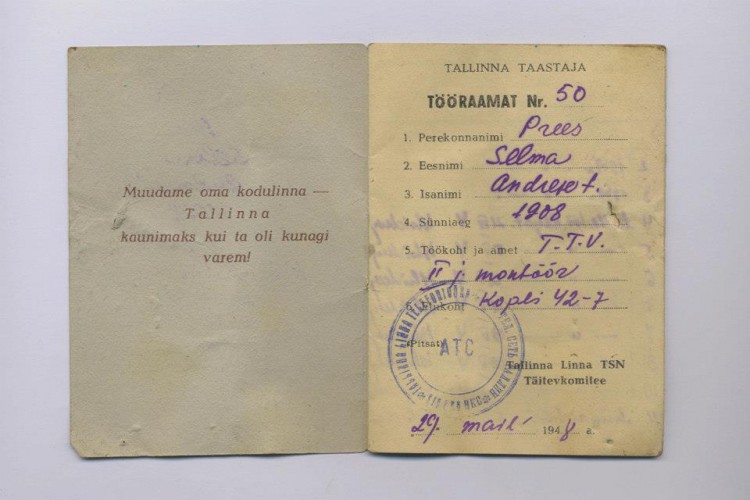 Muudame oma kodulinna —
Tallinna
kaunimaks kui ta oli kunagi
varem!
TALLINNA TAASTAJA
TÖÖRAAMAT Nr. 50
1. Perekonnanimi Prees
2. Eesnimi Selma
3. Isanimi
4. Sünniaeg 1908
5. Töökoht ja amet T.T.V.
II j. montöör
6. Elukoht Kopli 42-7
(Pitsat)
ATC
Tallinna Linna TSN
Täitevkomitee
29. 1948 a.